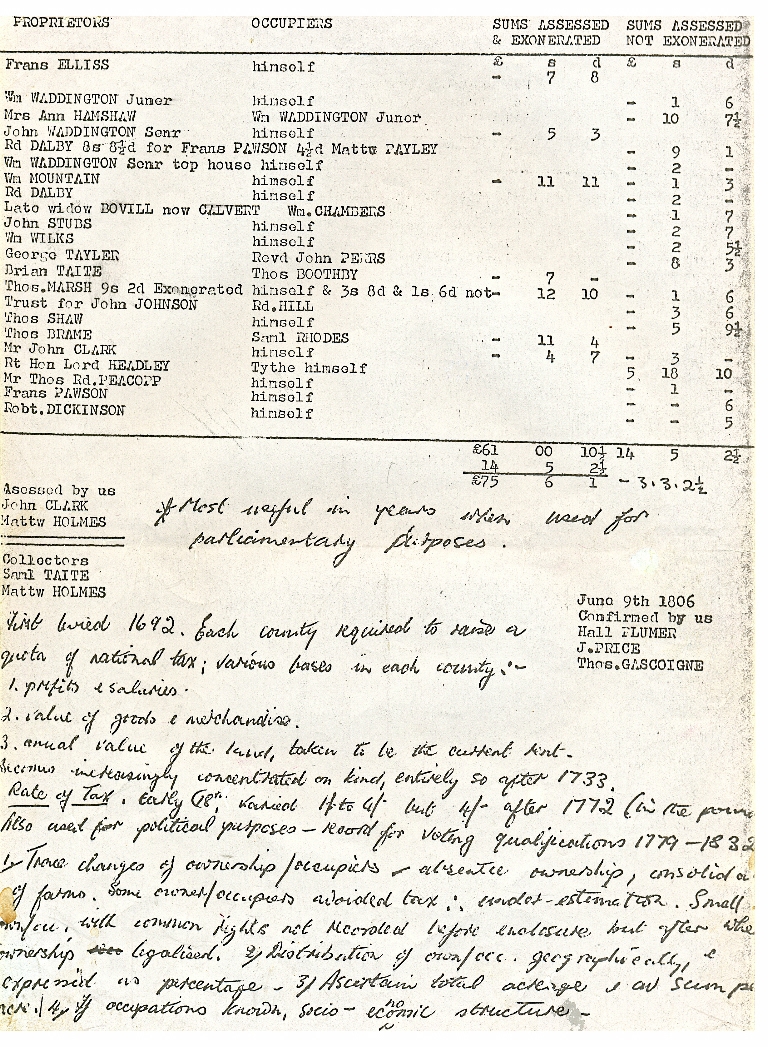 PROPRIETORS OCCUPIERS SUMS ASSESSED SUMS ASSESSED
& EXONERATED NOT EXONERATED
£ s d £ s d
Frans ELLISS himself - 7 8
Wm WADDINGTON Juner himself - 1 6
Mrs Ann HAMSHAW Wm WADDINGTON Junor - 10 7½
John WADDINGTON Senr himself - 5 3
Rd DALBY 8s 8½d for Frans PAWSON 4½d Mattw PAYLEY - 9 1
Wm WADDINGTON Senr top house himself - 2 -
Wm MOUNTAIN himself - 11 11 - 1 3
Rd DALBY himself - 2 -
Late widow BOVILL now CALVERT Wm.CHAMBERS - 1 7
John STUBS himself - 2 7
Wm WILKS himself - 2 5½
George TAYLER Revd John PEERS - 8 3
Brian TAITE Thos BOOTHBY - 7 -
Thos.MARSH 9s 2d Exonerated himself & 3s 8d & 1s 6d not- 12 10 - 1 6
Trust for John JOHNSON Rd.HILL - 3 6
Thos SHAW himself - 5 9½
Thos BRAME Saml RHODES - 11 4
Mr John CLARK himself - 4 7 - 3 -
Rt Hon Lord HEADLEY Tythe himself 5 18 10
Mr Thos Rd.PEACOPP himself - 1 -
Frans PAWSON himself - - 6
Robt.DICKINSON himself - - 5
£61 00 10½ 14 5 2½
14 5 2½
£75 6 1 - 3.3.2½
Asessed by us
John CLARK
Mattw HOLMES
* Most useful in years when used for
parliamentary purposes.
Collectors
Saml TAITE
Mattw HOLMES
June 9th 1806
Confirmed by us
Hall PLUMER
J.PRICE
Thos.GASCOIGNE
First levied 1692. Each county required to raise a
quota of national tax; various bases in each county:-
1. profits & salaries.
2. value of goods & merchandise.
3. anual value of the land, taken to be the current rent.
Becomes increasingly concentrated on land, entirely so after 1733.
Rate of Tax. Early 18th, varied 1/- to 4/- but 4/- after 1772 (in the poun
Also used for political purposes - record for voting qualifications 1779-1832
1) Trace changes of ownership/occupiers - absentee ownership, consolida
of farms. Some owner/occupiers avoided tax ∴ under-estimation. Small
own/occ. with common rights not recorded before enclosure but after whe
ownership legalised. 2) Distribution of own/occ. geographically, &
expressed as percentage - 3) Ascertain total acreage & av sum pe
acre. 4) If occupations known, socio-economic structure -